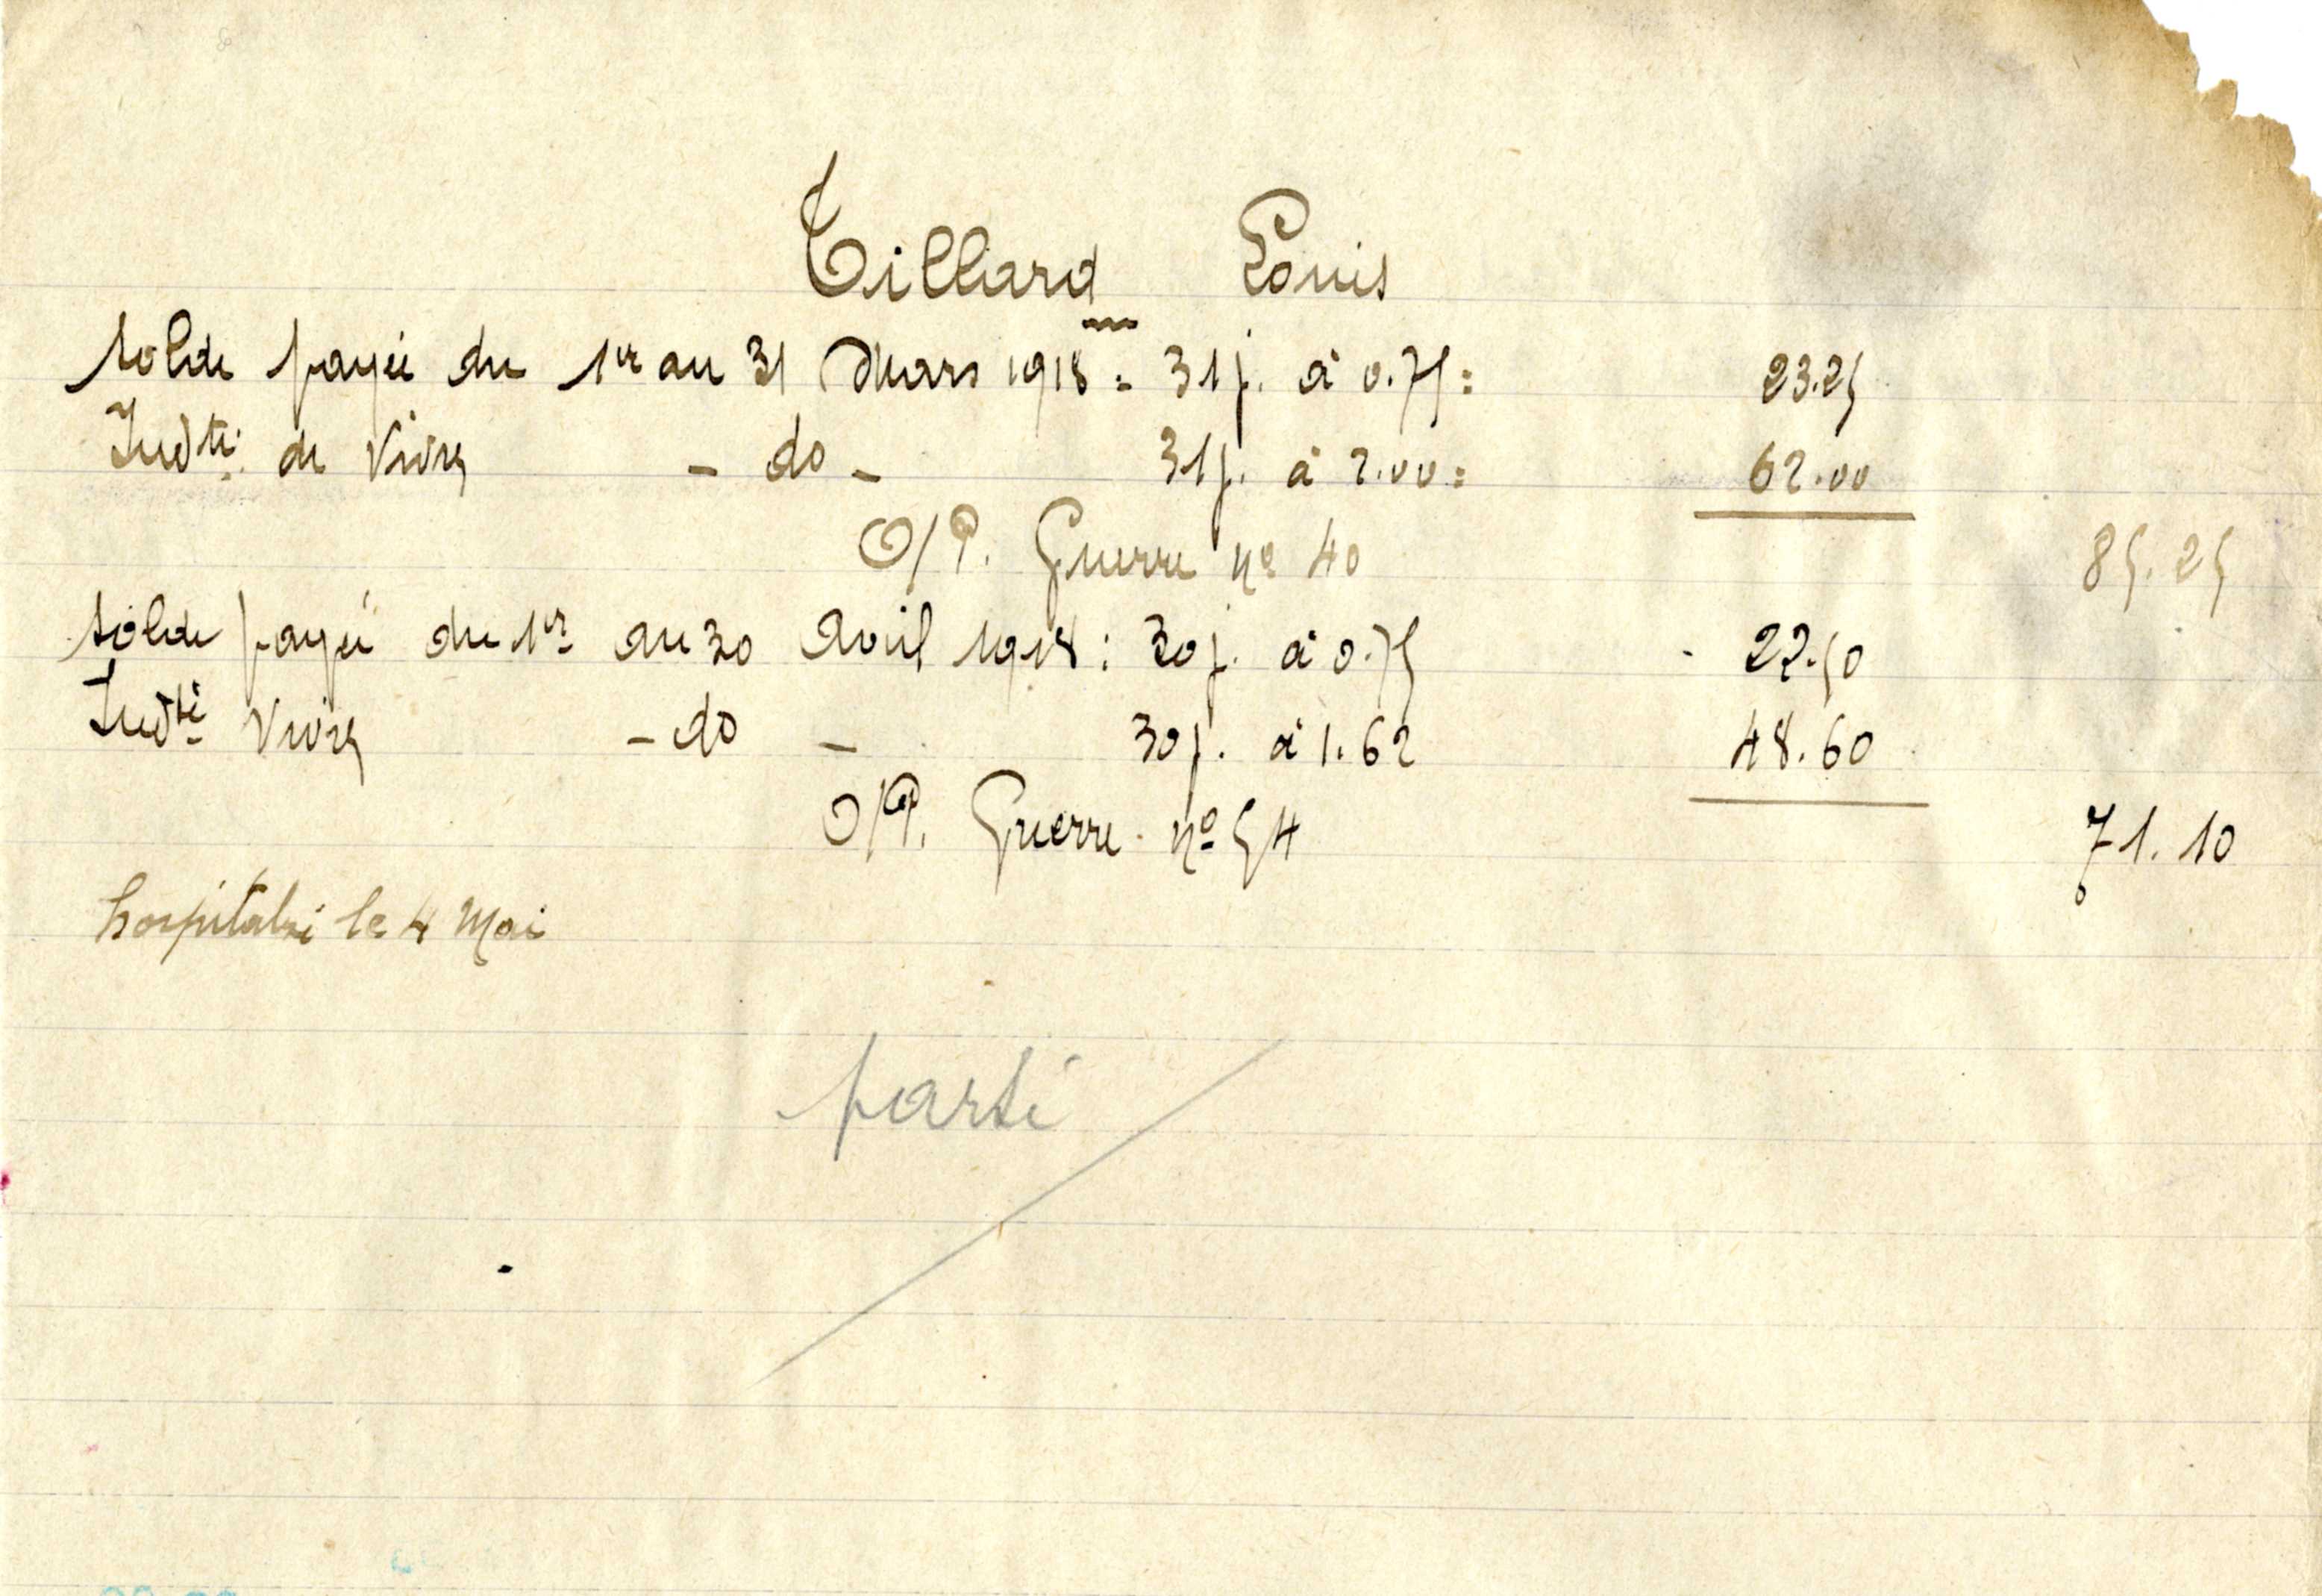 Tillard Louis
Solde payée du 1er au 31 Mars 1918 : 31 j. à 0.75 = 23.25
Indté de Vivres - do - 31 j. à 2.00 = 62.00
O/P. Guerre no 40 85.25
Solde payée du 1er au 30 Avril 1918 : 30 j. à 0.75 22.50
Indté Vivres - do - 30 j. à 1.62 48.60
O/P. Guerre no 54 71.10
hospitalisé le 4 Mai
parti